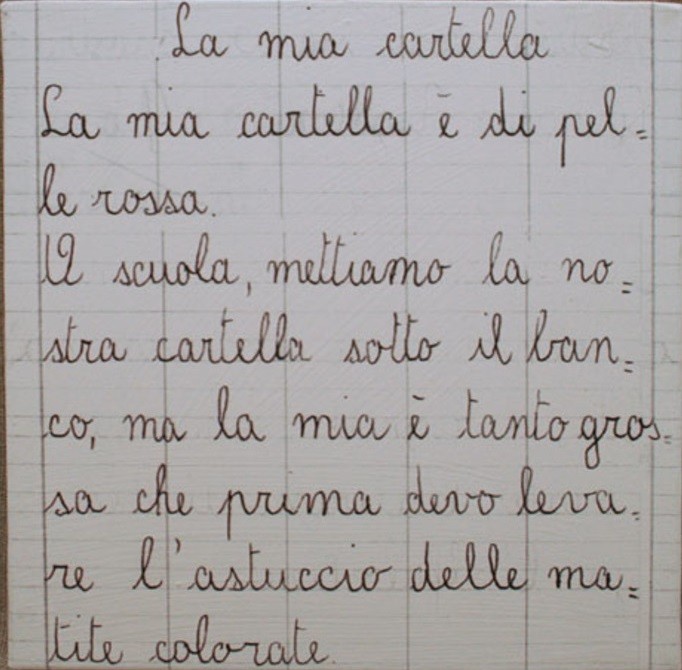 La mia cartella
La mia cartella è di pel=
le rossa.
A scuola, mettiamo la no=
stra cartella sotto il ban=
co, ma la mia è tanto gros=
sa che prima devo leva=
re l'astuccio delle ma=
tite colorate.